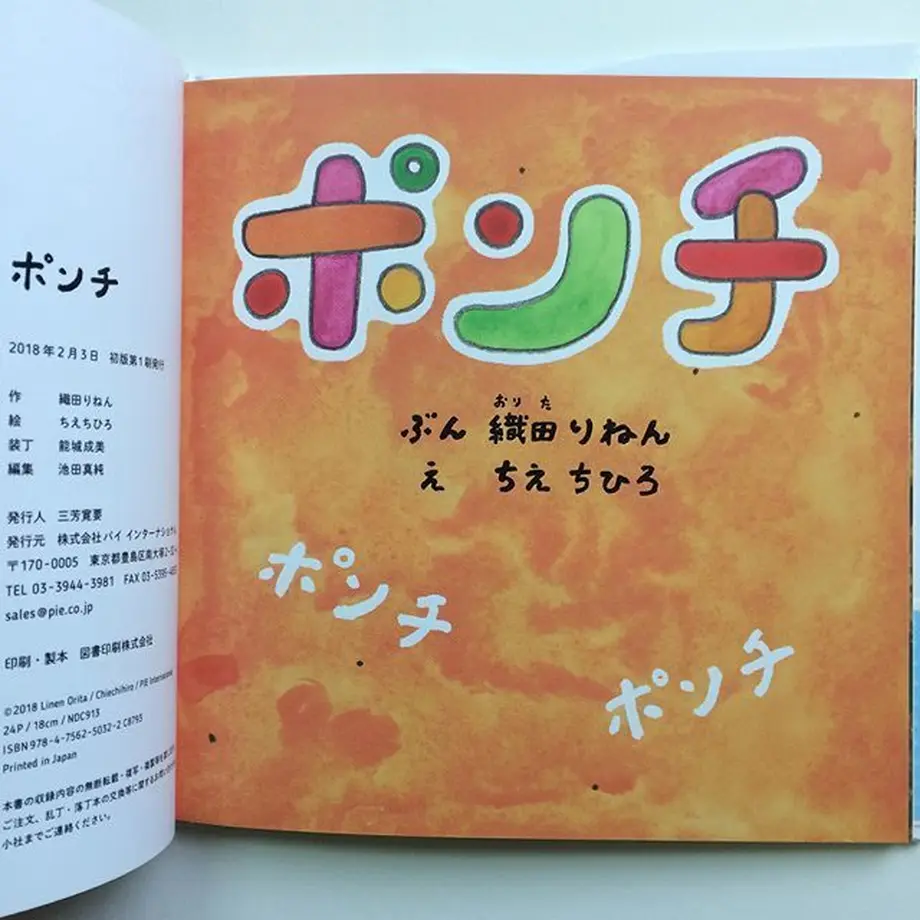 ポンチ
2018年2月3日 初版第1刷発行
作 織田りねん
絵 ちえちひろ
装丁 能城成美
編集 池田真純
発行人 三芳寛要
発行元 株式会社パイ インターナショナル
〒170-0005 東京都豊島区南大塚2-
TEL 03-3944-3981 FAX 03-5395-
sales@pie.co.jp
印刷・製本 図書印刷株式会社
©2018 Linen Orita / Chiechihiro / PIE International
24P / 18cm / NDC913
ISBN 978-4-7562-5032-2 C8793
Printed in Japan
本書の収録内容の無断転載・複写・複製等を
ご注文、乱丁・落丁本の交換等に関する
小社までご連絡ください。
ポンチ
おりた
ぶん 織田りねん
え ちえちひろ
ポンチ
ポンチ